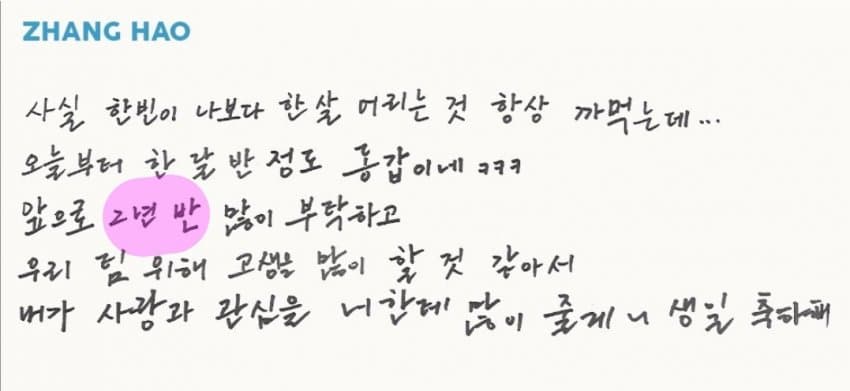 ZHANG HAO
사실 한빈이 나보다 한살 어리는 것 항상 까먹는데...
오늘부터 한 달 반 정도 동갑이네 ㅋㅋㅋ
앞으로 2년 반 많이 부탁하고
우리 팀 위해 고생을 많이 할 것 같아서
내가 사랑과 관심을 너한테 많이 줄게 니 생일 축하해